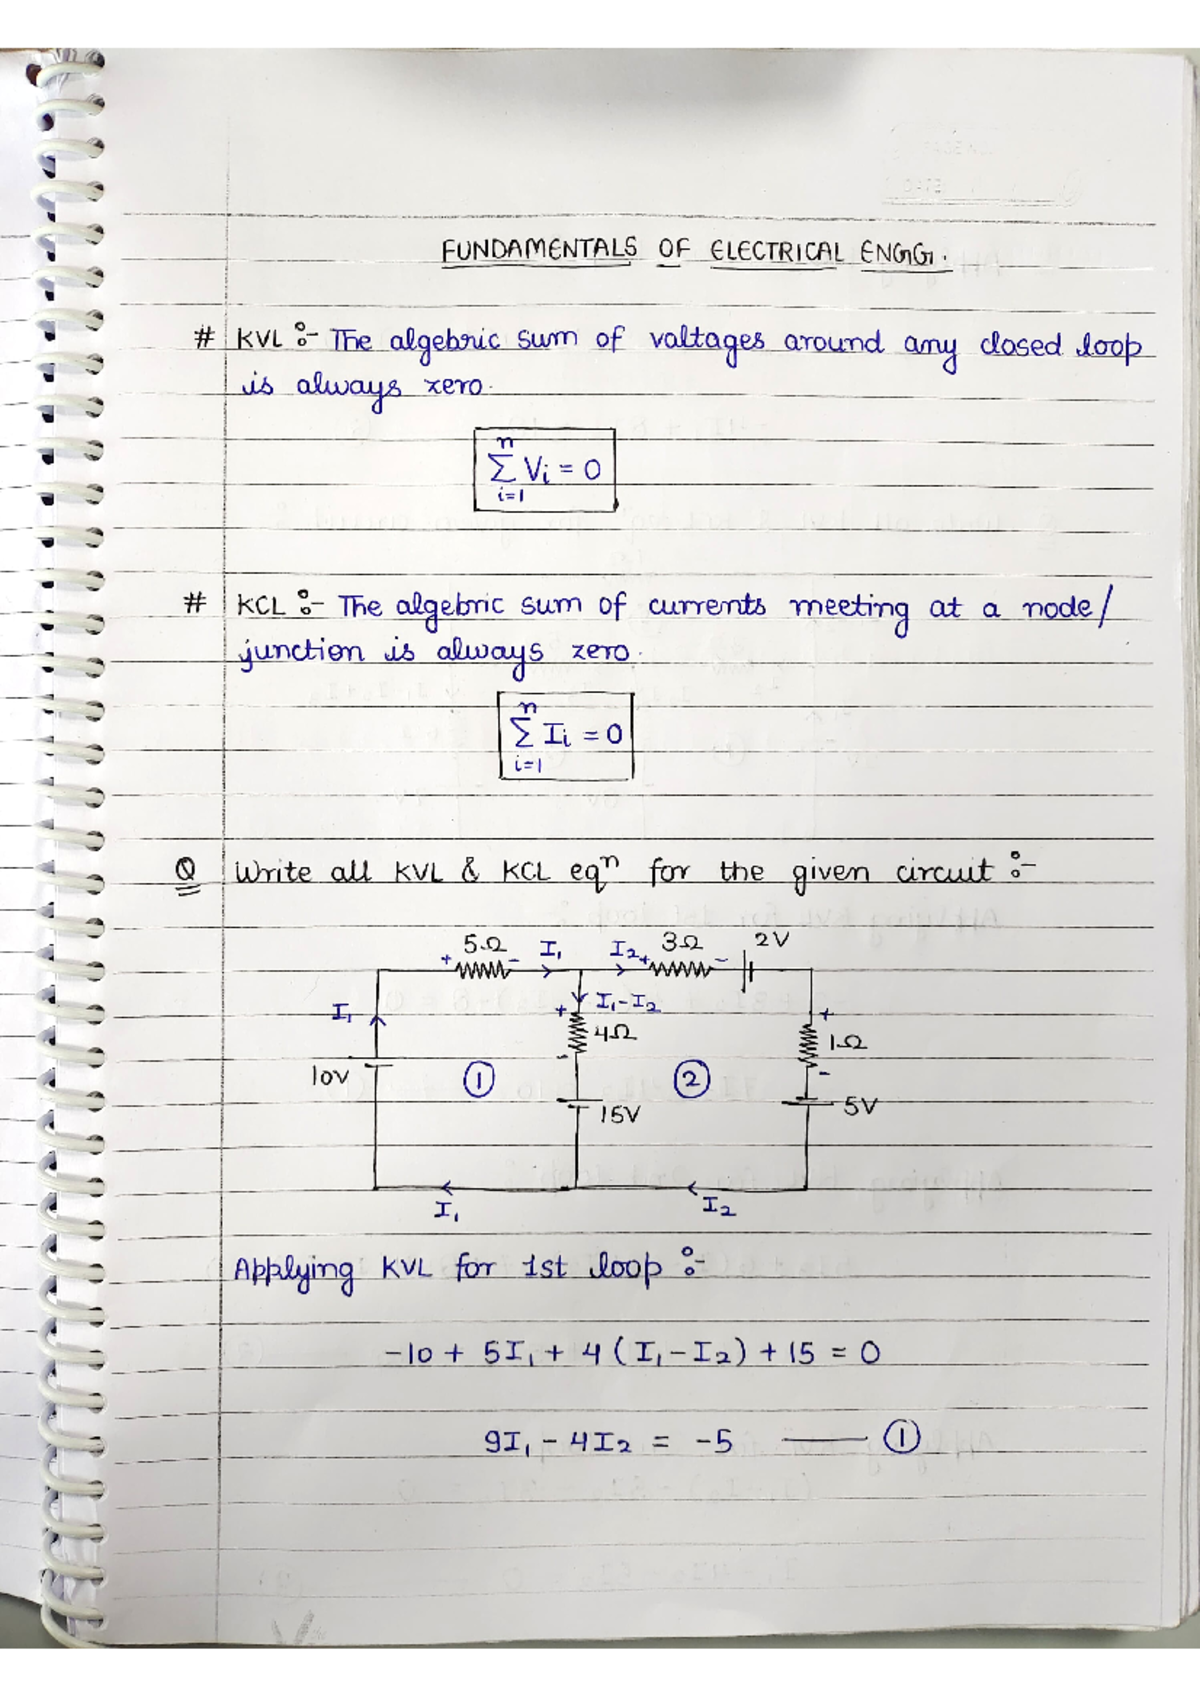 FUNDAMENTALS OF ELECTRICAL ENGG.
# KVL :- The algebric sum of voltages around any closed loop
is always zero.
n
Σ Vi = 0
i=1
# KCL :- The algebric sum of currents meeting at a node/
junction is always zero.
n
Σ Ii = 0
i=1
Q Write all KVL & KCL eqⁿ for the given circuit :-
+ 5Ω - I₁ I₂ + 3Ω - 2V
I₁ + I₁-I₂ +
4Ω 1Ω
- -
10V ① ②
15V 5V
I₁ I₂
Applying KVL for 1st loop :-
-10 + 5I₁ + 4 (I₁ - I₂) + 15 = 0
9I₁ - 4I₂ = -5 —— ①